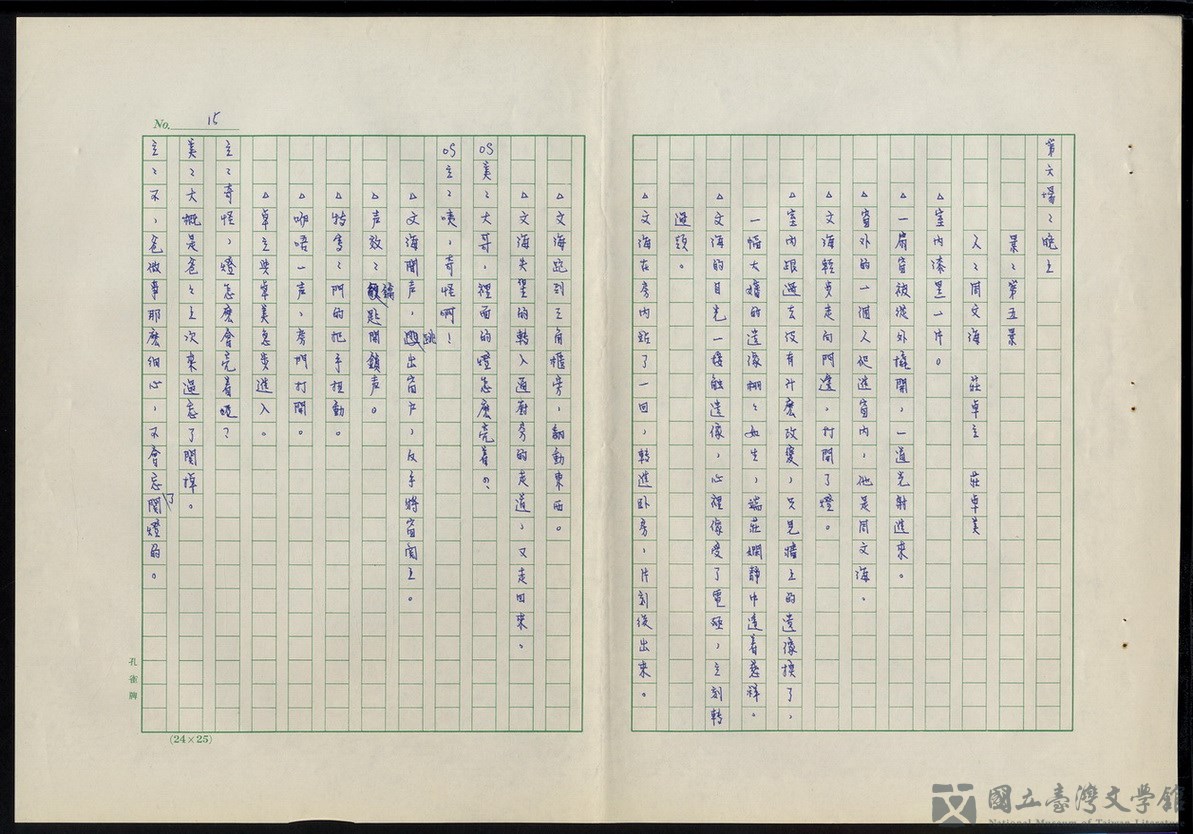 第六場：晚上
景：第五景
人：周文海　莊卓立　莊卓美
△室內漆黑一片。
△一扇窗被從外撬開，一道光射進來。
△窗外的一個人爬進窗內，他是周文海。
△文海輕步走向門邊，打開了燈。
△室內跟過去沒有什麼改變，只見牆上的遺像換了，
一幅大媽的遺像栩栩如生，端莊嫻靜中透着慈祥。
△文海的目光一接觸遺像，心裡像受了電殛，立刻轉
過頭。
△文海在房內踮了一回，轉進卧房，片刻後出來。
△文海跑到三角櫃旁，翻動東西。
△文海失望的轉入通廚房的走道，又走回來。
OS美：大哥，裡面的燈怎麼亮着的、
OS立：咦，奇怪啊！
△文海聞聲，跳出窗戶，反手將窗關上。
△声效：鑰匙開鎖声。
△特寫：門的把手扭動。
△咿唔一声，房門打開。
△卓立與卓美急步進入。
立：奇怪，燈怎麼會亮着呢？
美：大概是爸爸上次來過忘了關掉。
立：不，爸做事那麼細心，不會忘了關燈的。
No. 15
孔雀牌
(24×25)
國立臺灣文學館
National Museum of Taiwan Literature